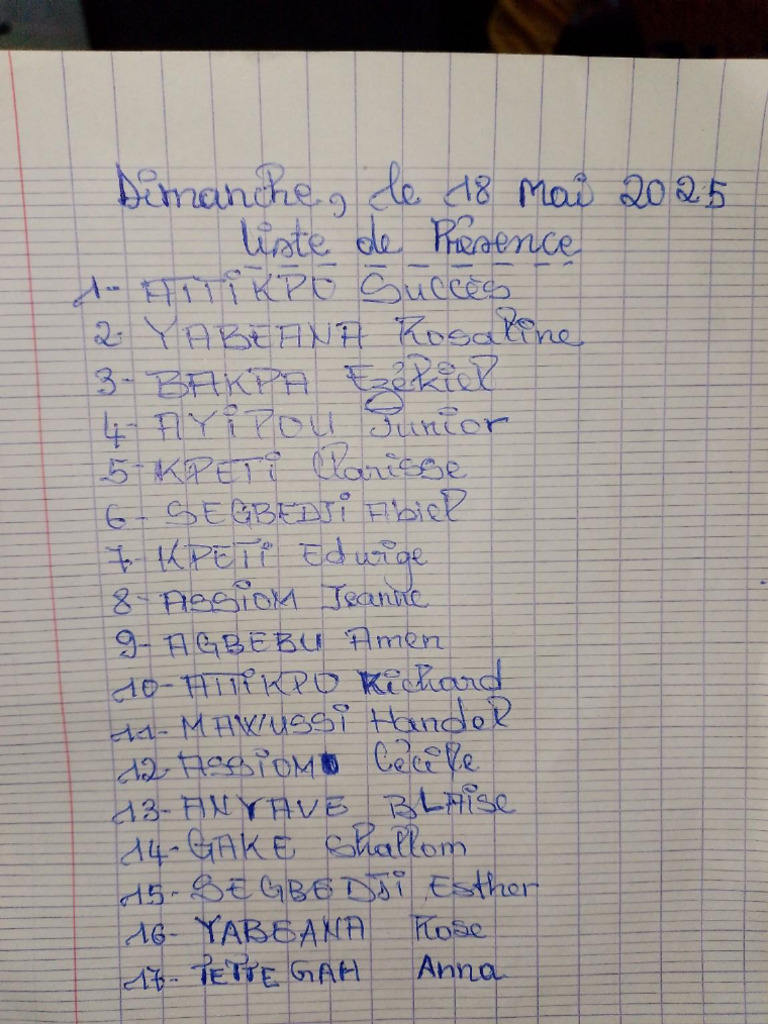 Dimanche, le 18 Mai 2025
Liste de Présence
1- ATTiKPO Succès
2- YABEANA Rosaline
3- BAKPA Ezékiel
4- AYiPOU Junior
5- KPETi Clarisse
6- SEGBEDJi Abiel
7- KPETi Edwige
8- ASSiOM Jeanne
9- AGBEBU Amen
10- ATTiKPO Richard
11- MAWUSSi Handel
12- ASSiOM Cécile
13- ANYAVE BLAise
14- GAKE Shallom
15- SEGBEDJi Esther
16- YABEANA Rose
17- TETTEGAH Anna